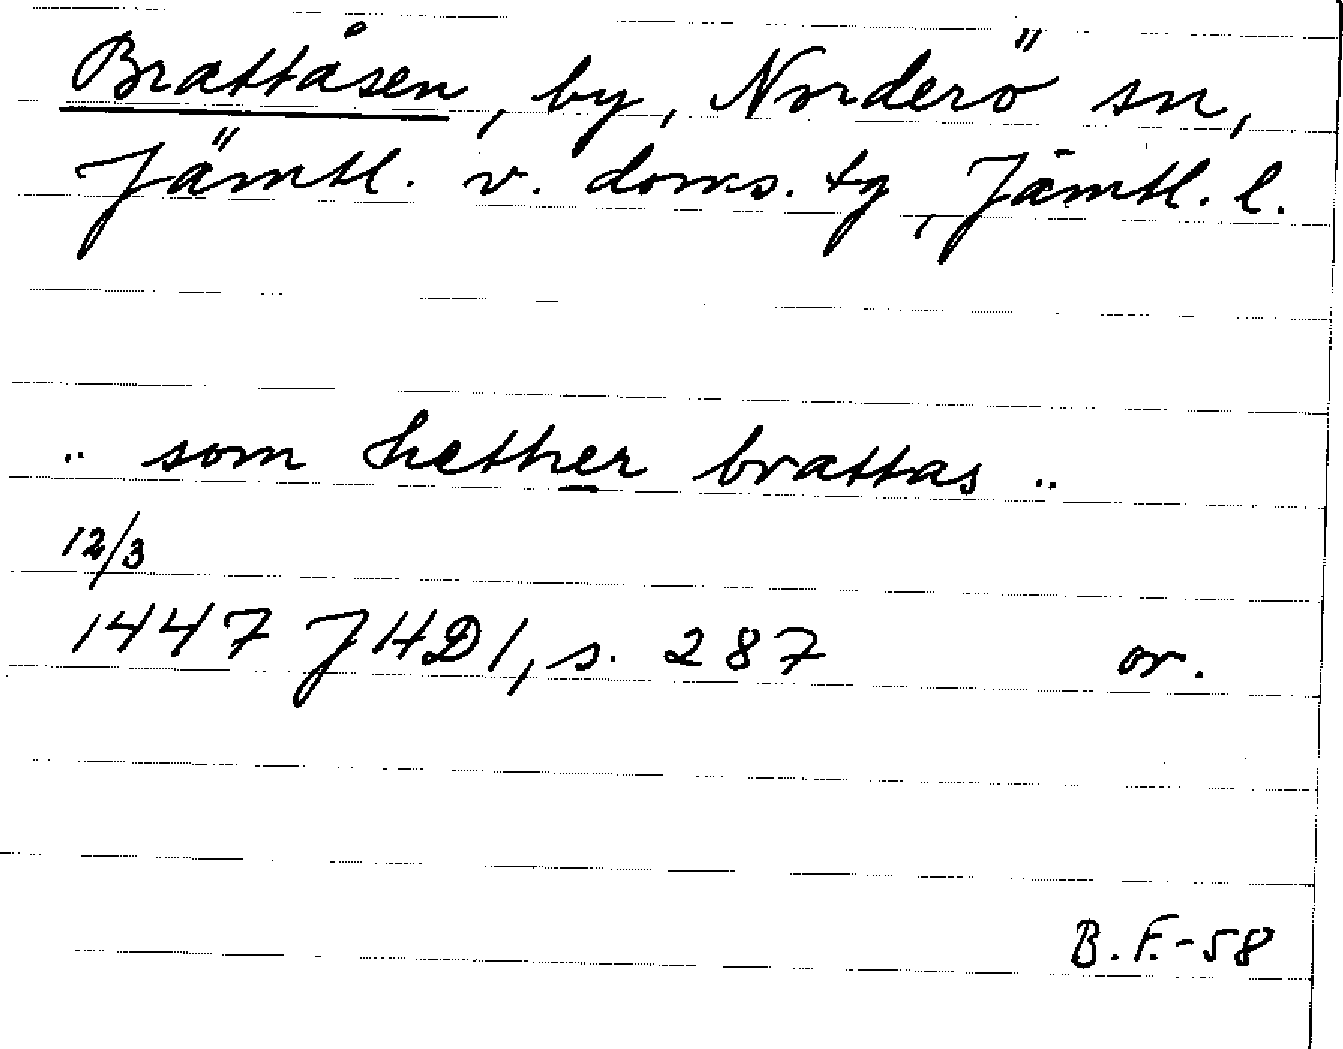 Brattåsen, by, Norderö sn,
Jämtl. v. doms. tg, Jämtl. l.
.. som hether brattas ..
12/3
1447 JHD 1, s. 287 or.
B.F.-58